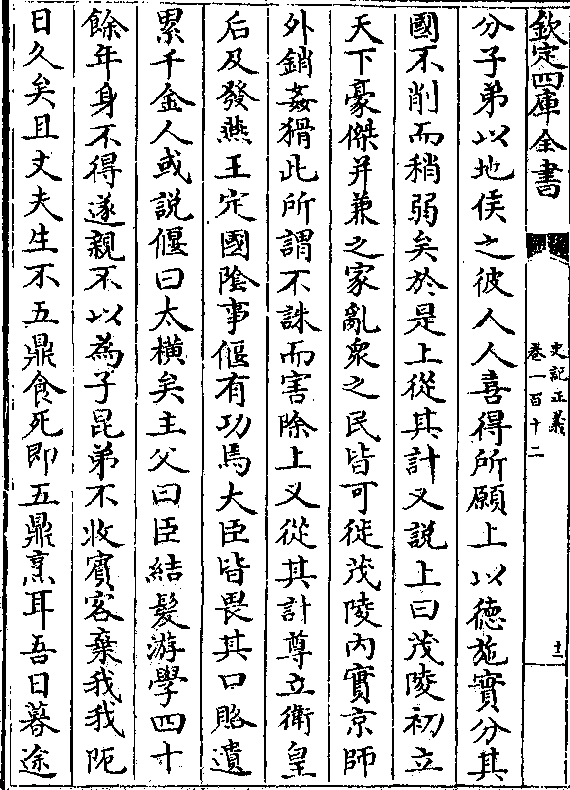 欽定四庫全書
史記正義
卷一百十二
十一
分子弟以地侯之彼人人喜得所願上以德施實分其
國不削而稍弱矣於是上從其計又說上曰茂陵初立
天下豪傑并兼之家亂衆之民皆可徙茂陵內實京師
外銷姦猾此所謂不誅而害除上又從其計尊立衛皇
后及發燕王定國陰事偃有功焉大臣皆畏其口賂遺
累千金人或說偃曰太橫矣主父曰臣結髮游學四十
餘年身不得遂親不以為子昆弟不收賓客棄我我阨
日久矣且丈夫生不五鼎食死即五鼎烹耳吾日暮途